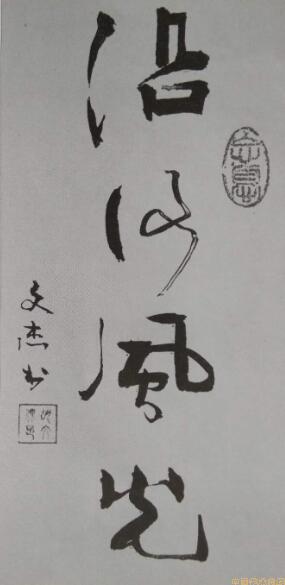 沿河風光
文杰书